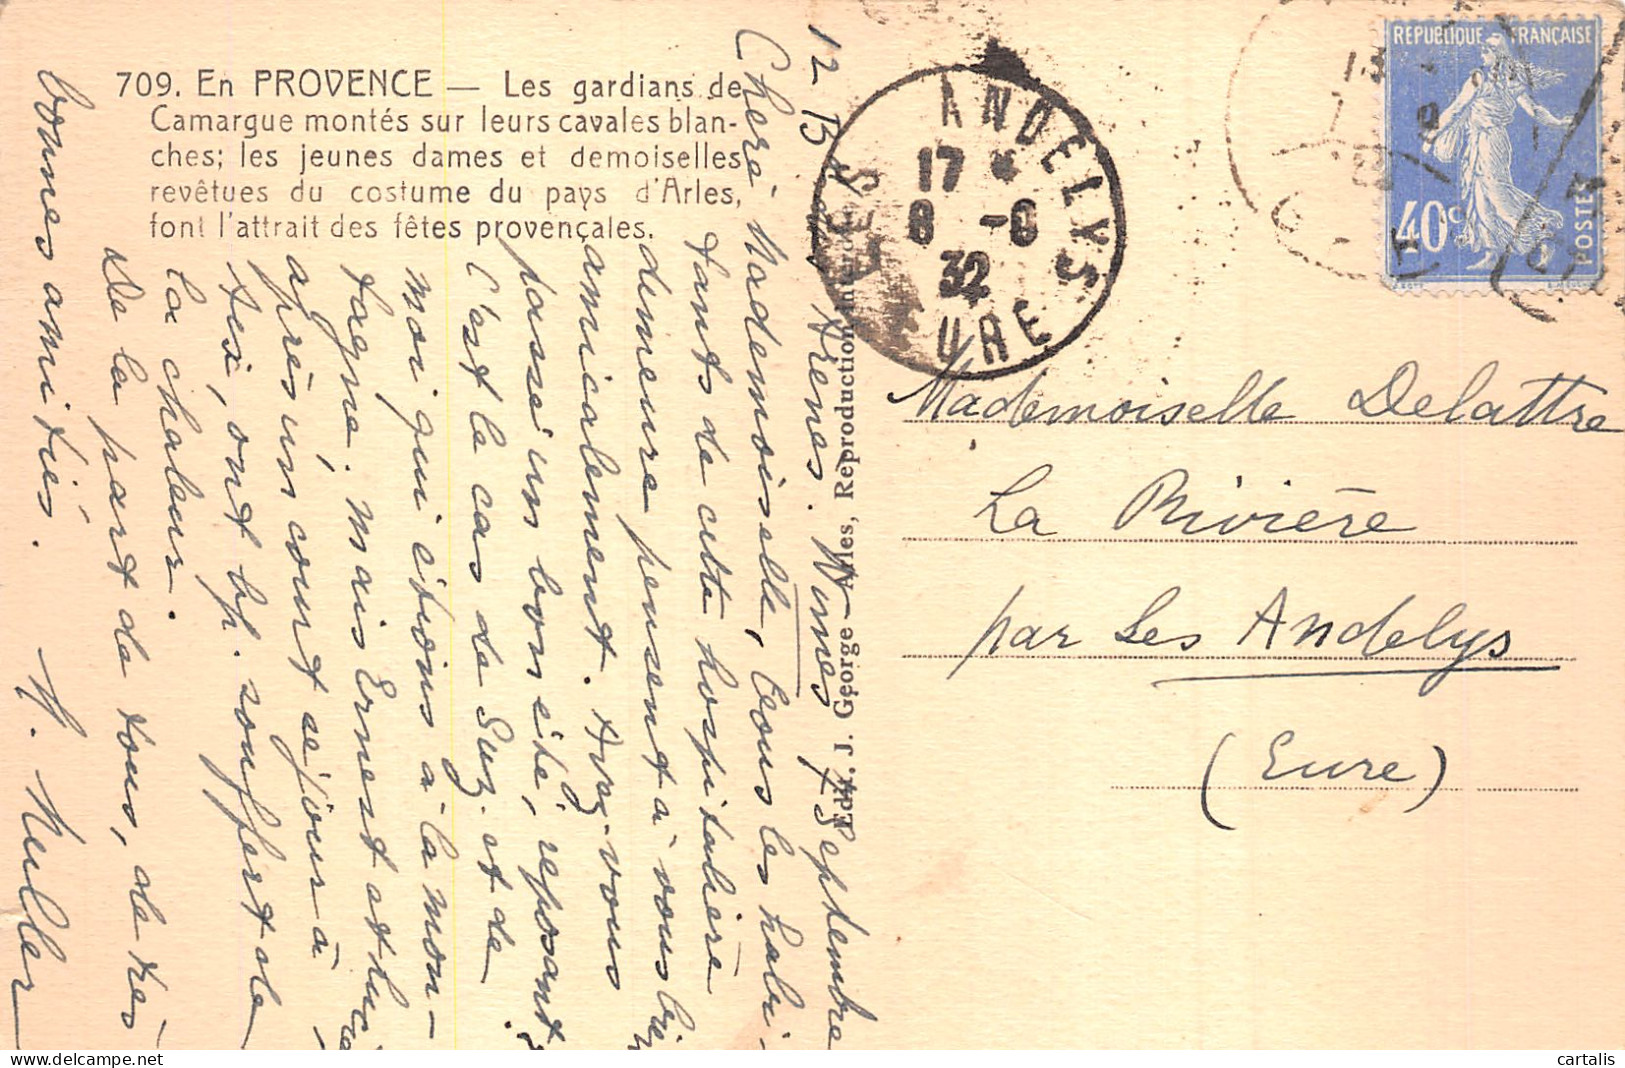 709. En PROVENCE — Les gardians de
Camargue montés sur leurs cavales blan-
ches; les jeunes dames et demoiselles
revêtues du costume du pays d'Arles,
font l'attrait des fêtes provençales.
12 B Arènes. Nimes 7 Septembre
Chère Mademoiselle, Tous les habi-
tants de cette hospitalière
demeure pensent à vous bien
amicalement. Avez-vous
passé un bon été, reposant?
C'est le cas de Suz. et de
moi qui étions à la mon-
tagne. Mais Ernest et
après un court séjour à
ont bp. souffert de
la chaleur.
De la part de tous, de très
bonnes amitiés.
Muller
Edit. J. George Arles, Reproduction interdite
LES ANDELYS
17
8 -9
32
EURE
REPUBLIQUE FRANÇAISE
40c
POSTES
Mademoiselle Delattre
La Rivière
par Les Andelys
(Eure)
cartalis